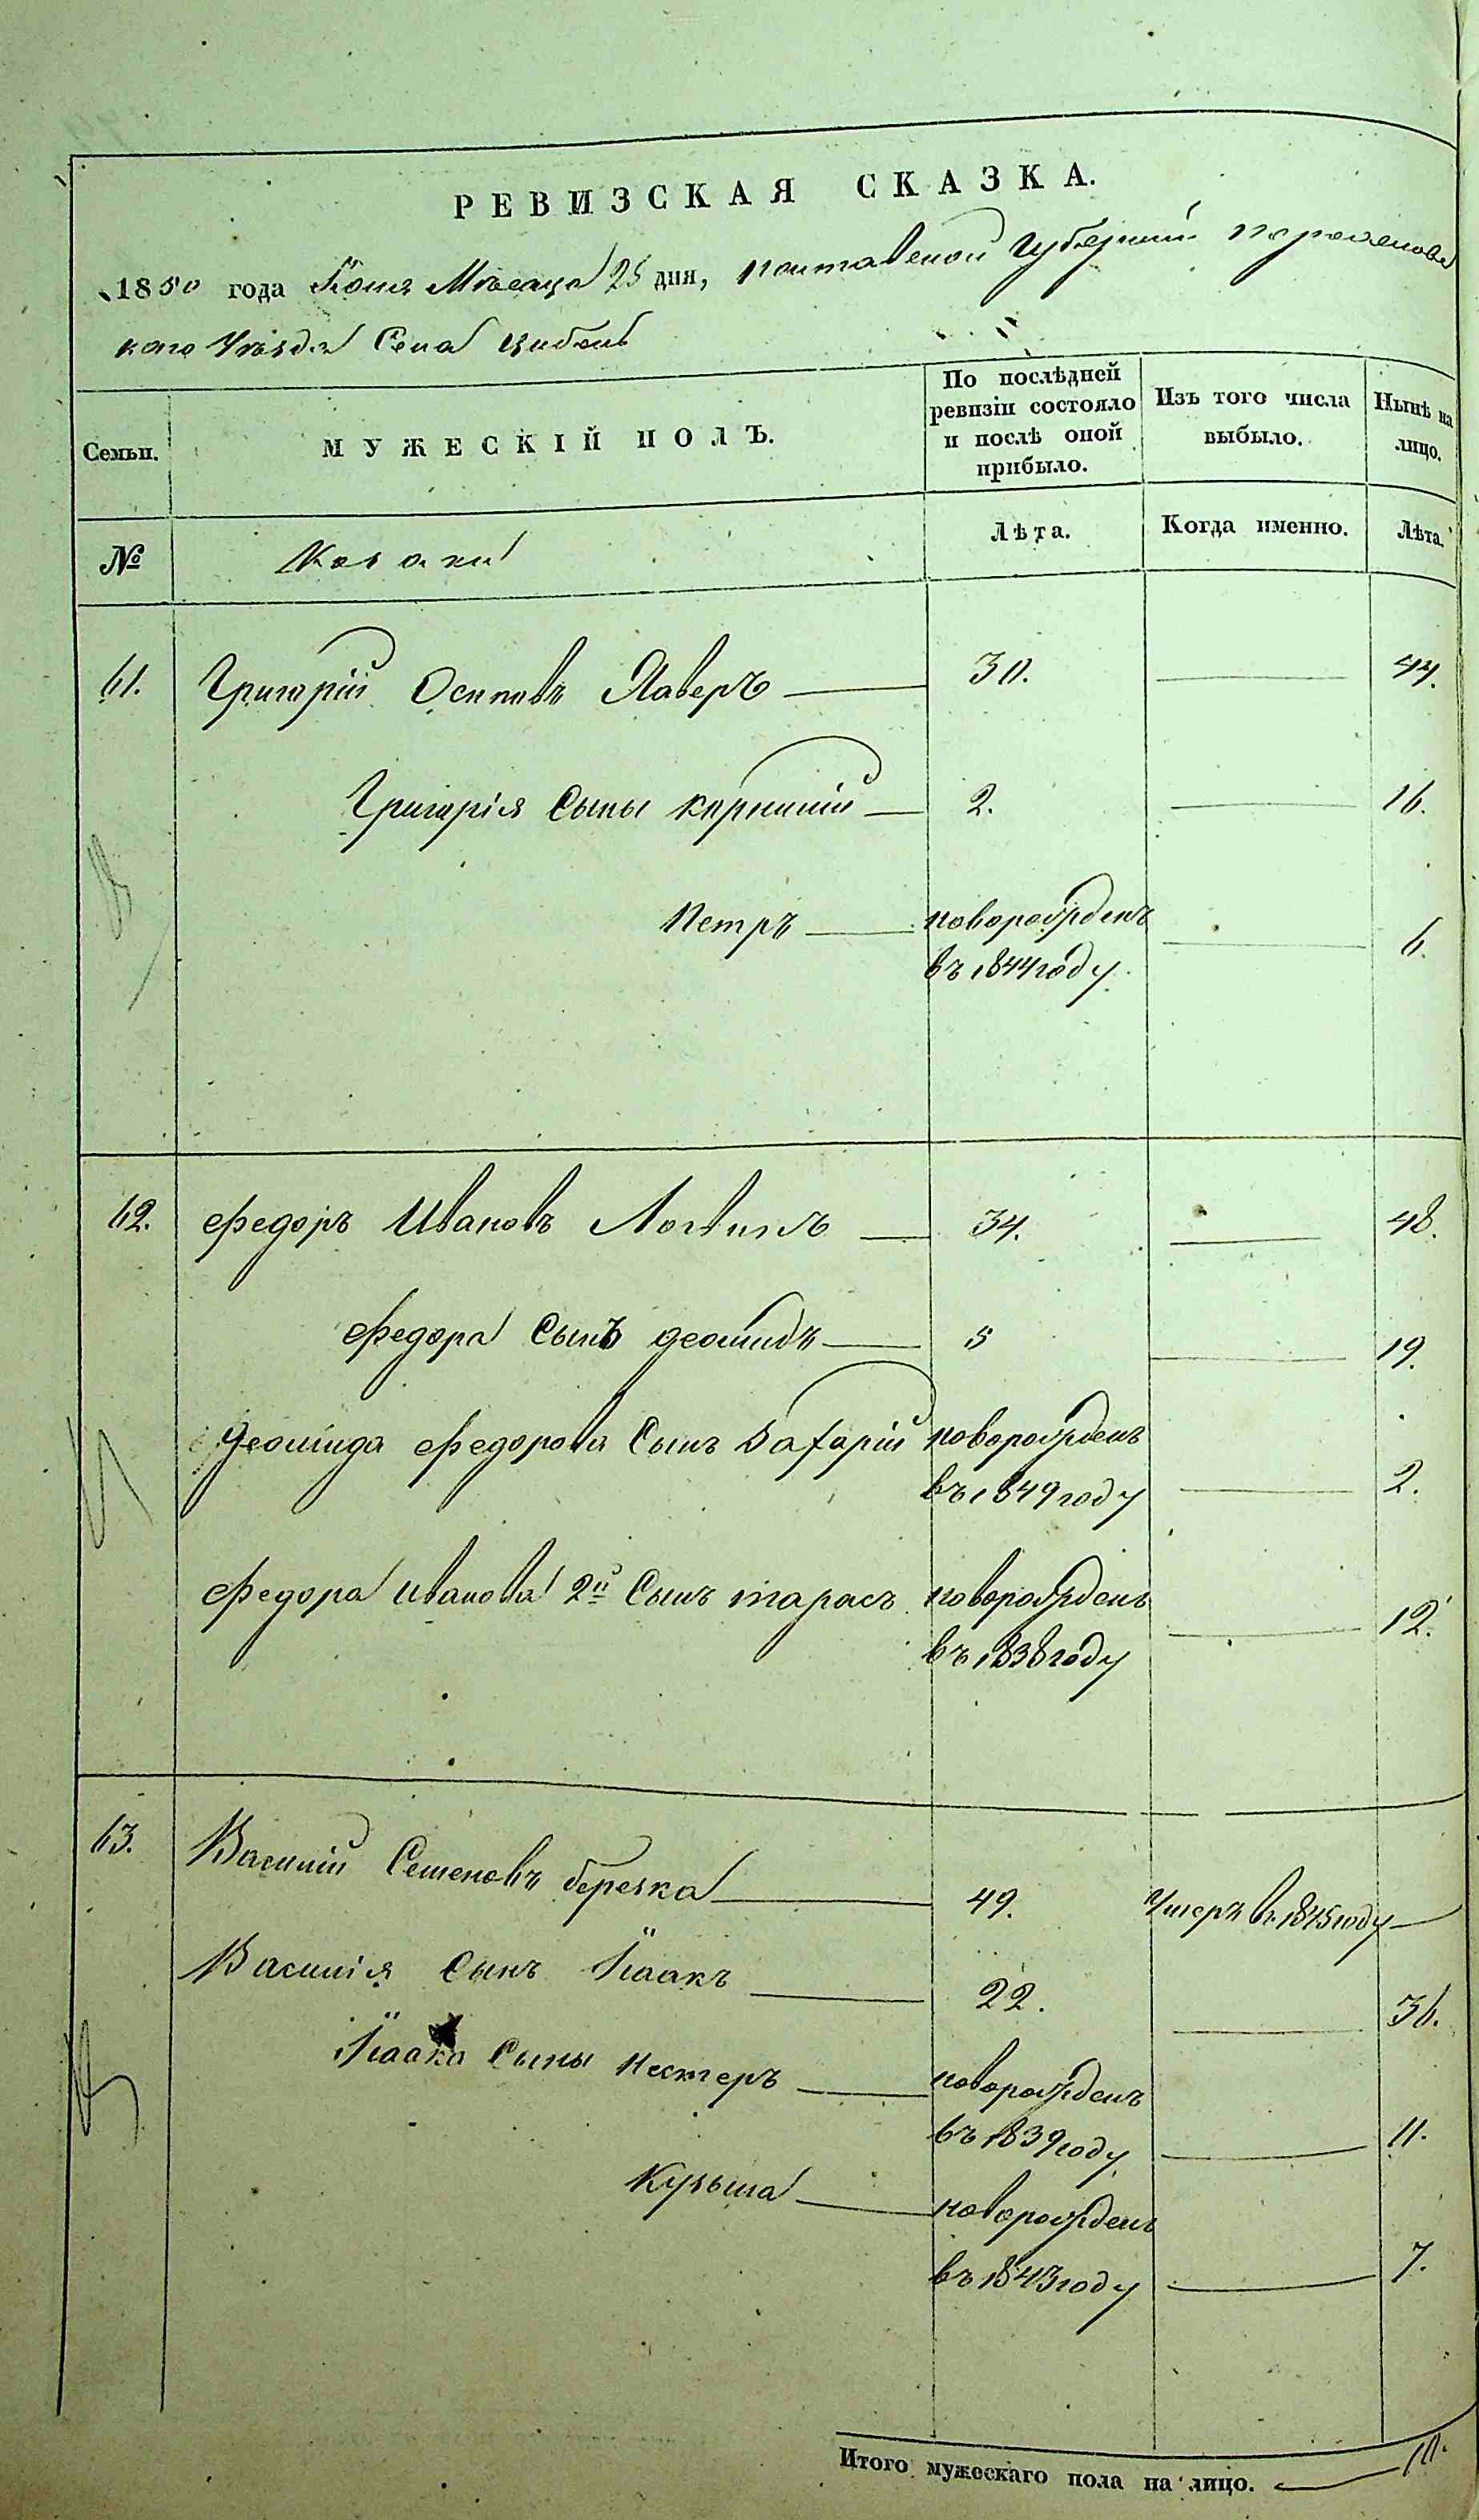 РЕВИЗСКАЯ СКАЗКА.
1850 года Іюня Мѣсяца 25 дня, Полтавской Губерніи Пирятинс
каго Уѣзда Села
Семьи.
МУЖЕСКІЙ ПОЛЪ.
По послѣдней ревизіи состояло и послѣ оной прибыло.
Изъ того числа выбыло.
Нынѣ на лицо.
№
Козаки
Лѣта.
Когда именно.
Лѣта.
61. Григорій Осиповъ Яверъ 30. 44.
Григорія Сыны Корнилій 2. 16.
Петръ новорожденъ
въ 1844 году. 6.
62. Федоръ Ивановъ Логвинъ 34. 48.
Федора Сынъ Деомидъ 5 19.
Деомида Федорова Сынъ Захарій новорожденъ
въ 1849 году 2.
Федора Иванова 2й Сынъ Тарасъ новорожденъ
въ 1838 году 12.
63. Василій Семеновъ Березка 49. Умеръ въ 1845 году
Василія Сынъ Ісаакъ 22. 36.
Ісаака Сыны Нестеръ новорожденъ
въ 1839 году 11.
Кузьма новорожденъ
въ 1843 году 7.
Итого мужескаго пола на лицо. 10.